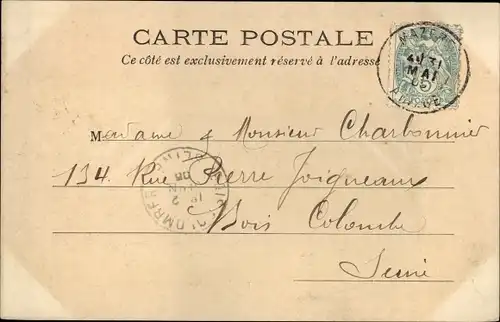 CARTE POSTALE
Ce côté est exclusivement réservé à l'adresse
MAZÈRES
31
MAI
05
ARIÈGE
Madame & Monsieur Charbonnier
134 Rue Pierre Joigneaux
Bois Colombe
Seine